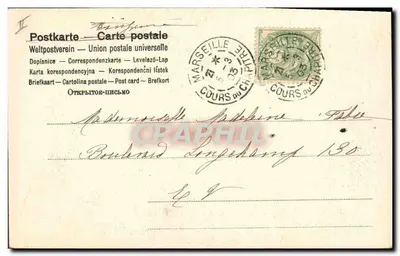 II
Postkarte — Carte postale
Weltpostverein – Union postale universelle
Dopisnice – Correspondenzkarte – Levelező-Lap
Karta korespondencyjna – Korespondenční lístek
Briefkaart – Cartolina postale – Post card – Brefkort
Открытое письмо
MARSEILLE COURS DU CHAPITRE
MARSEILLE COURS DU CHAPITRE
CARTORUM
Mademoiselle Madeleine
Boulevard Longchamp 130
E V